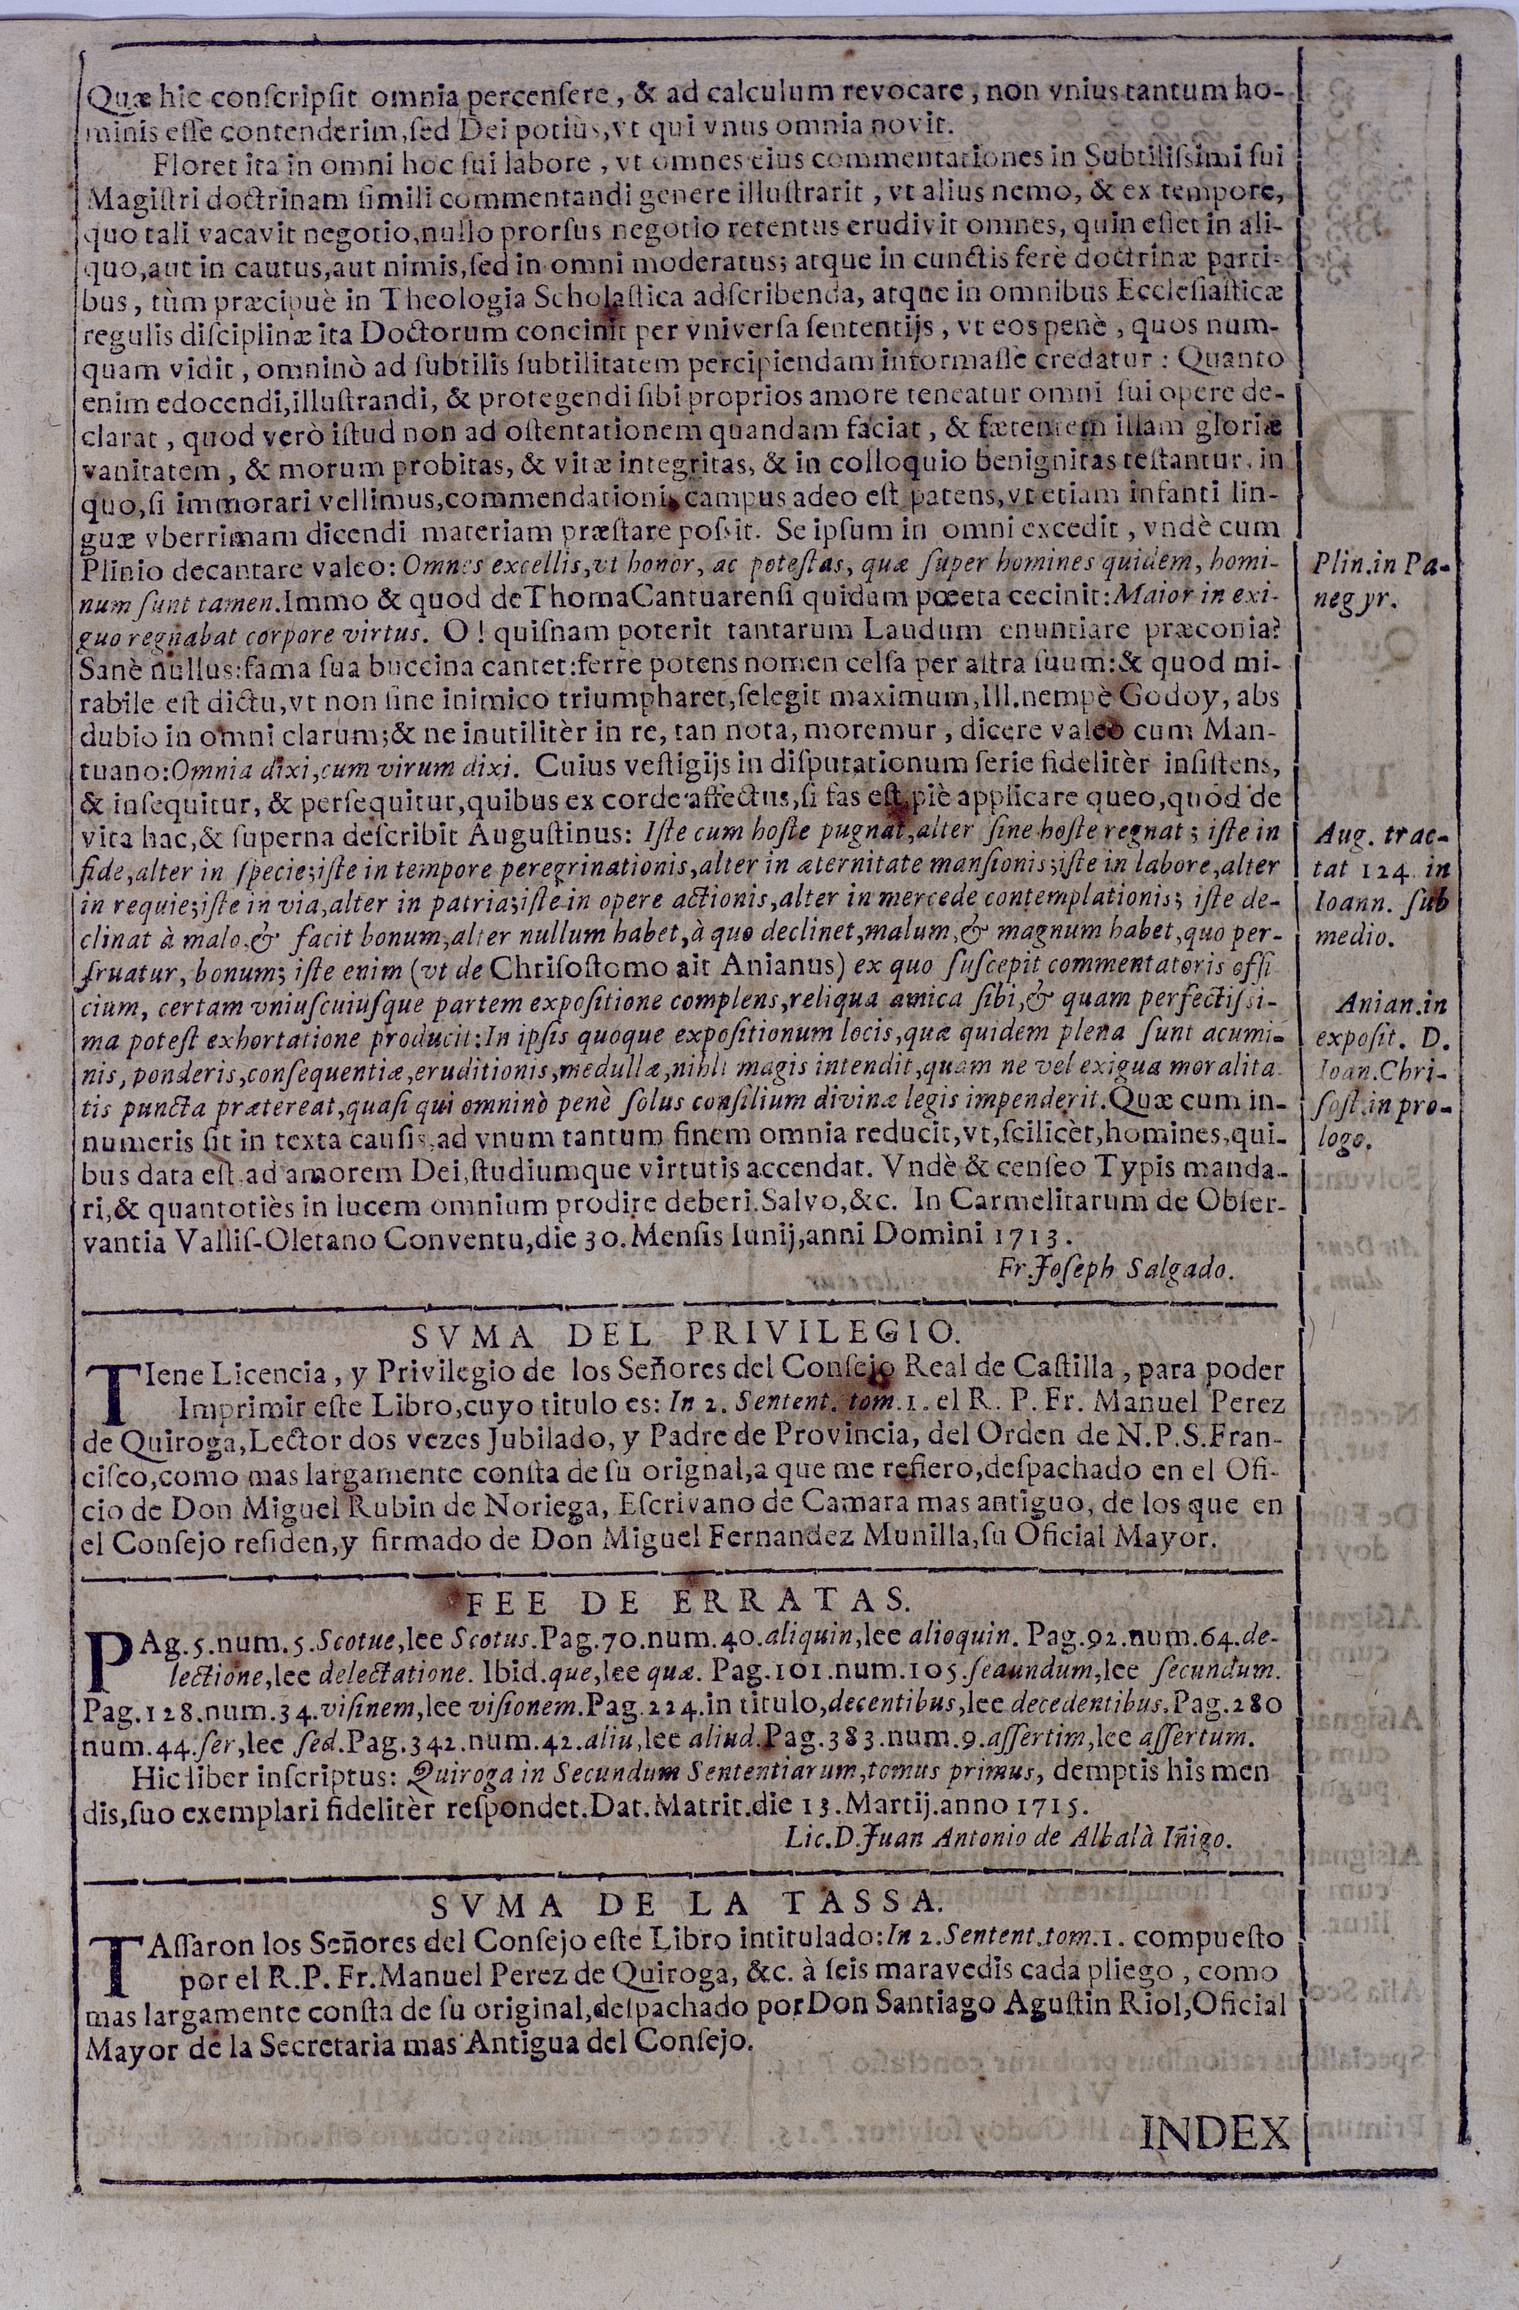 Quæ hic conſcripſit omnia percenſere, & ad calculum revocare, non vnius tantum ho-
minis eſſe contenderim, ſed Dei potiùs, vt qui vnus omnia novit.
Floret ita in omni hoc ſui labore, vt omnes eius commentationes in Subtiliſsimi ſui
Magiſtri doctrinam ſimili commentandi genere illuſtrarit, vt alius nemo, & ex tempore,
quo tali vacavit negotio, nullo prorſus negotio retentus erudivit omnes, quin eſſet in ali-
quo, aut in cautus, aut nimis, ſed in omni moderatus; atque in cunctis ferè doctrinæ parti-
bus, tùm præcipuè in Theologia Scholaſtica adſcribenda, atque in omnibus Eccleſiaſticæ
regulis diſciplinæ ita Doctorum concinit per vniverſa ſententijs, vt eos penè, quos num-
quam vidit, omninò ad ſubtilis ſubtilitatem percipiendam informaſſe credatur: Quanto
enim edocendi, illuſtrandi, & protegendi ſibi proprios amore teneatur omni ſui opere de-
clarat, quod verò iſtud non ad oſtentationem quandam faciat, & fætentem illam gloriæ
vanitatem, & morum probitas, & vitæ integritas, & in colloquio benignitas teſtantur, in
quo, ſi immorari vellimus, commendationi campus adeo eſt patens, vt etiam infanti lin-
guæ vberrimam dicendi materiam præſtare poſsit. Se ipſum in omni excedit, vndè cum
Plinio decantare valeo: Omnes excellis, vt honor, ac poteſtas, quæ ſuper homines quidem, homi-
num ſunt tamen. Immo & quod de Thoma Cantuarenſi quidam pœeta cecinit: Maior in exi-
guo regnabat corpore virtus. O! quiſnam poterit tantarum Laudum enuntiare præconia?
Sanè nullus: fama ſua buccina cantet: ferre potens nomen celſa per aſtra ſuum: & quod mi-
rabile eſt dictu, vt non ſine inimico triumpharet, ſelegit maximum, Ill. nempè Godoy, abs
dubio in omni clarum; & ne inutilitèr in re, tan nota, moremur, dicere valeo cum Man-
tuano: Omnia dixi, cum virum dixi. Cuius veſtigijs in diſputationum ſerie fidelitèr inſiſtens,
& inſequitur, & perſequitur, quibus ex corde affectus, ſi fas eſt, piè applicare queo, quod de
vita hac, & ſuperna deſcribit Auguſtinus: Iſte cum hoſte pugnat, alter ſine hoſte regnat; iſte in
fide, alter in ſpecie; iſte in tempore peregrinationis, alter in æternitate manſionis; iſte in labore, alter
in requie; iſte in via, alter in patria; iſte in opere actionis, alter in mercede contemplationis; iſte de-
clinat à malo, & facit bonum, alter nullum habet, à quo declinet, malum, & magnum habet, quo per-
fruatur, bonum; iſte enim (vt de Chriſoſtomo ait Anianus) ex quo ſuſcepit commentatoris offi
cium, certam vniuſcuiuſque partem expoſitione complens, reliqua amica ſibi, & quam perfectiſsi-
ma poteſt exhortatione producit: In ipſis quoque expoſitionum locis, quæ quidem plena ſunt acumi-
nis, ponderis, conſequentiæ, eruditionis, medullæ, nihil magis intendit, quam ne vel exigua moralita
tis puncta prætereat, quaſi qui omninò penè ſolus conſilium divinæ legis impenderit. Quæ cum in-
numeris ſit in texta cauſis, ad vnum tantum finem omnia reducit, vt, ſcilicèt, homines, qui-
bus data eſt ad amorem Dei, ſtudiumque virtutis accendat. Vndè & cenſeo Typis manda-
ri, & quantotiès in lucem omnium prodire deberi. Salvo, &c. In Carmelitarum de Obſer-
vantia Valliſ-Oletano Conventu, die 30. Menſis Iunij, anni Domini 1713.
Fr. Joſeph Salgado.
Plin. in Pa-
negyr.
Aug. trac-
tat 124. in
Ioann. ſub
medio.
Anian. in
expoſit. D.
Ioan. Chri-
ſoſt. in pro-
logo.
SVMA DEL PRIVILEGIO.
TIene Licencia, y Privilegio de los Señores del Conſejo Real de Caſtilla, para poder
Imprimir eſte Libro, cuyo titulo es: In 2. Sentent. tom. 1. el R. P. Fr. Manuel Perez
de Quiroga, Lector dos vezes Jubilado, y Padre de Provincia, del Orden de N. P. S. Fran-
ciſco, como mas largamente conſta de ſu orignal, a que me refiero, deſpachado en el Ofi-
cio de Don Miguel Rubin de Noriega, Eſcrivano de Camara mas antiguo, de los que en
el Conſejo reſiden, y firmado de Don Miguel Fernandez Munilla, ſu Oficial Mayor.
FEE DE ERRATAS.
PAg. 5. num. 5. Scotue, lee Scotus. Pag. 70. num. 40. aliquin, lee alioquin. Pag. 92. num. 64. de-
lectione, lee delectatione. Ibid. que, lee quæ. Pag. 101. num. 105. ſeaundum, lee ſecundum.
Pag. 128. num. 34. viſinem, lee viſionem. Pag. 224. in titulo, decentibus, lee decedentibus. Pag. 280
num. 44. ſer, lee ſed. Pag. 342. num. 42. aliu, lee aliud. Pag. 383. num. 9. aſſertim, lee aſſertum.
Hic liber inſcriptus: Quiroga in Secundum Sententiarum, tomus primus, demptis his men
dis, ſuo exemplari fidelitèr reſpondet. Dat. Matrit. die 13. Martij. anno 1715.
Lic. D. Juan Antonio de Albalà Iñigo.
SVMA DE LA TASSA.
TAſſaron los Señores del Conſejo eſte Libro intitulado: In 2. Sentent. tom. 1. compueſto
por el R. P. Fr. Manuel Perez de Quiroga, &c. à ſeis maravedis cada pliego, como
mas largamente conſta de ſu original, deſpachado por Don Santiago Aguſtin Riol, Oficial
Mayor de la Secretaria mas Antigua del Conſejo.
INDEX